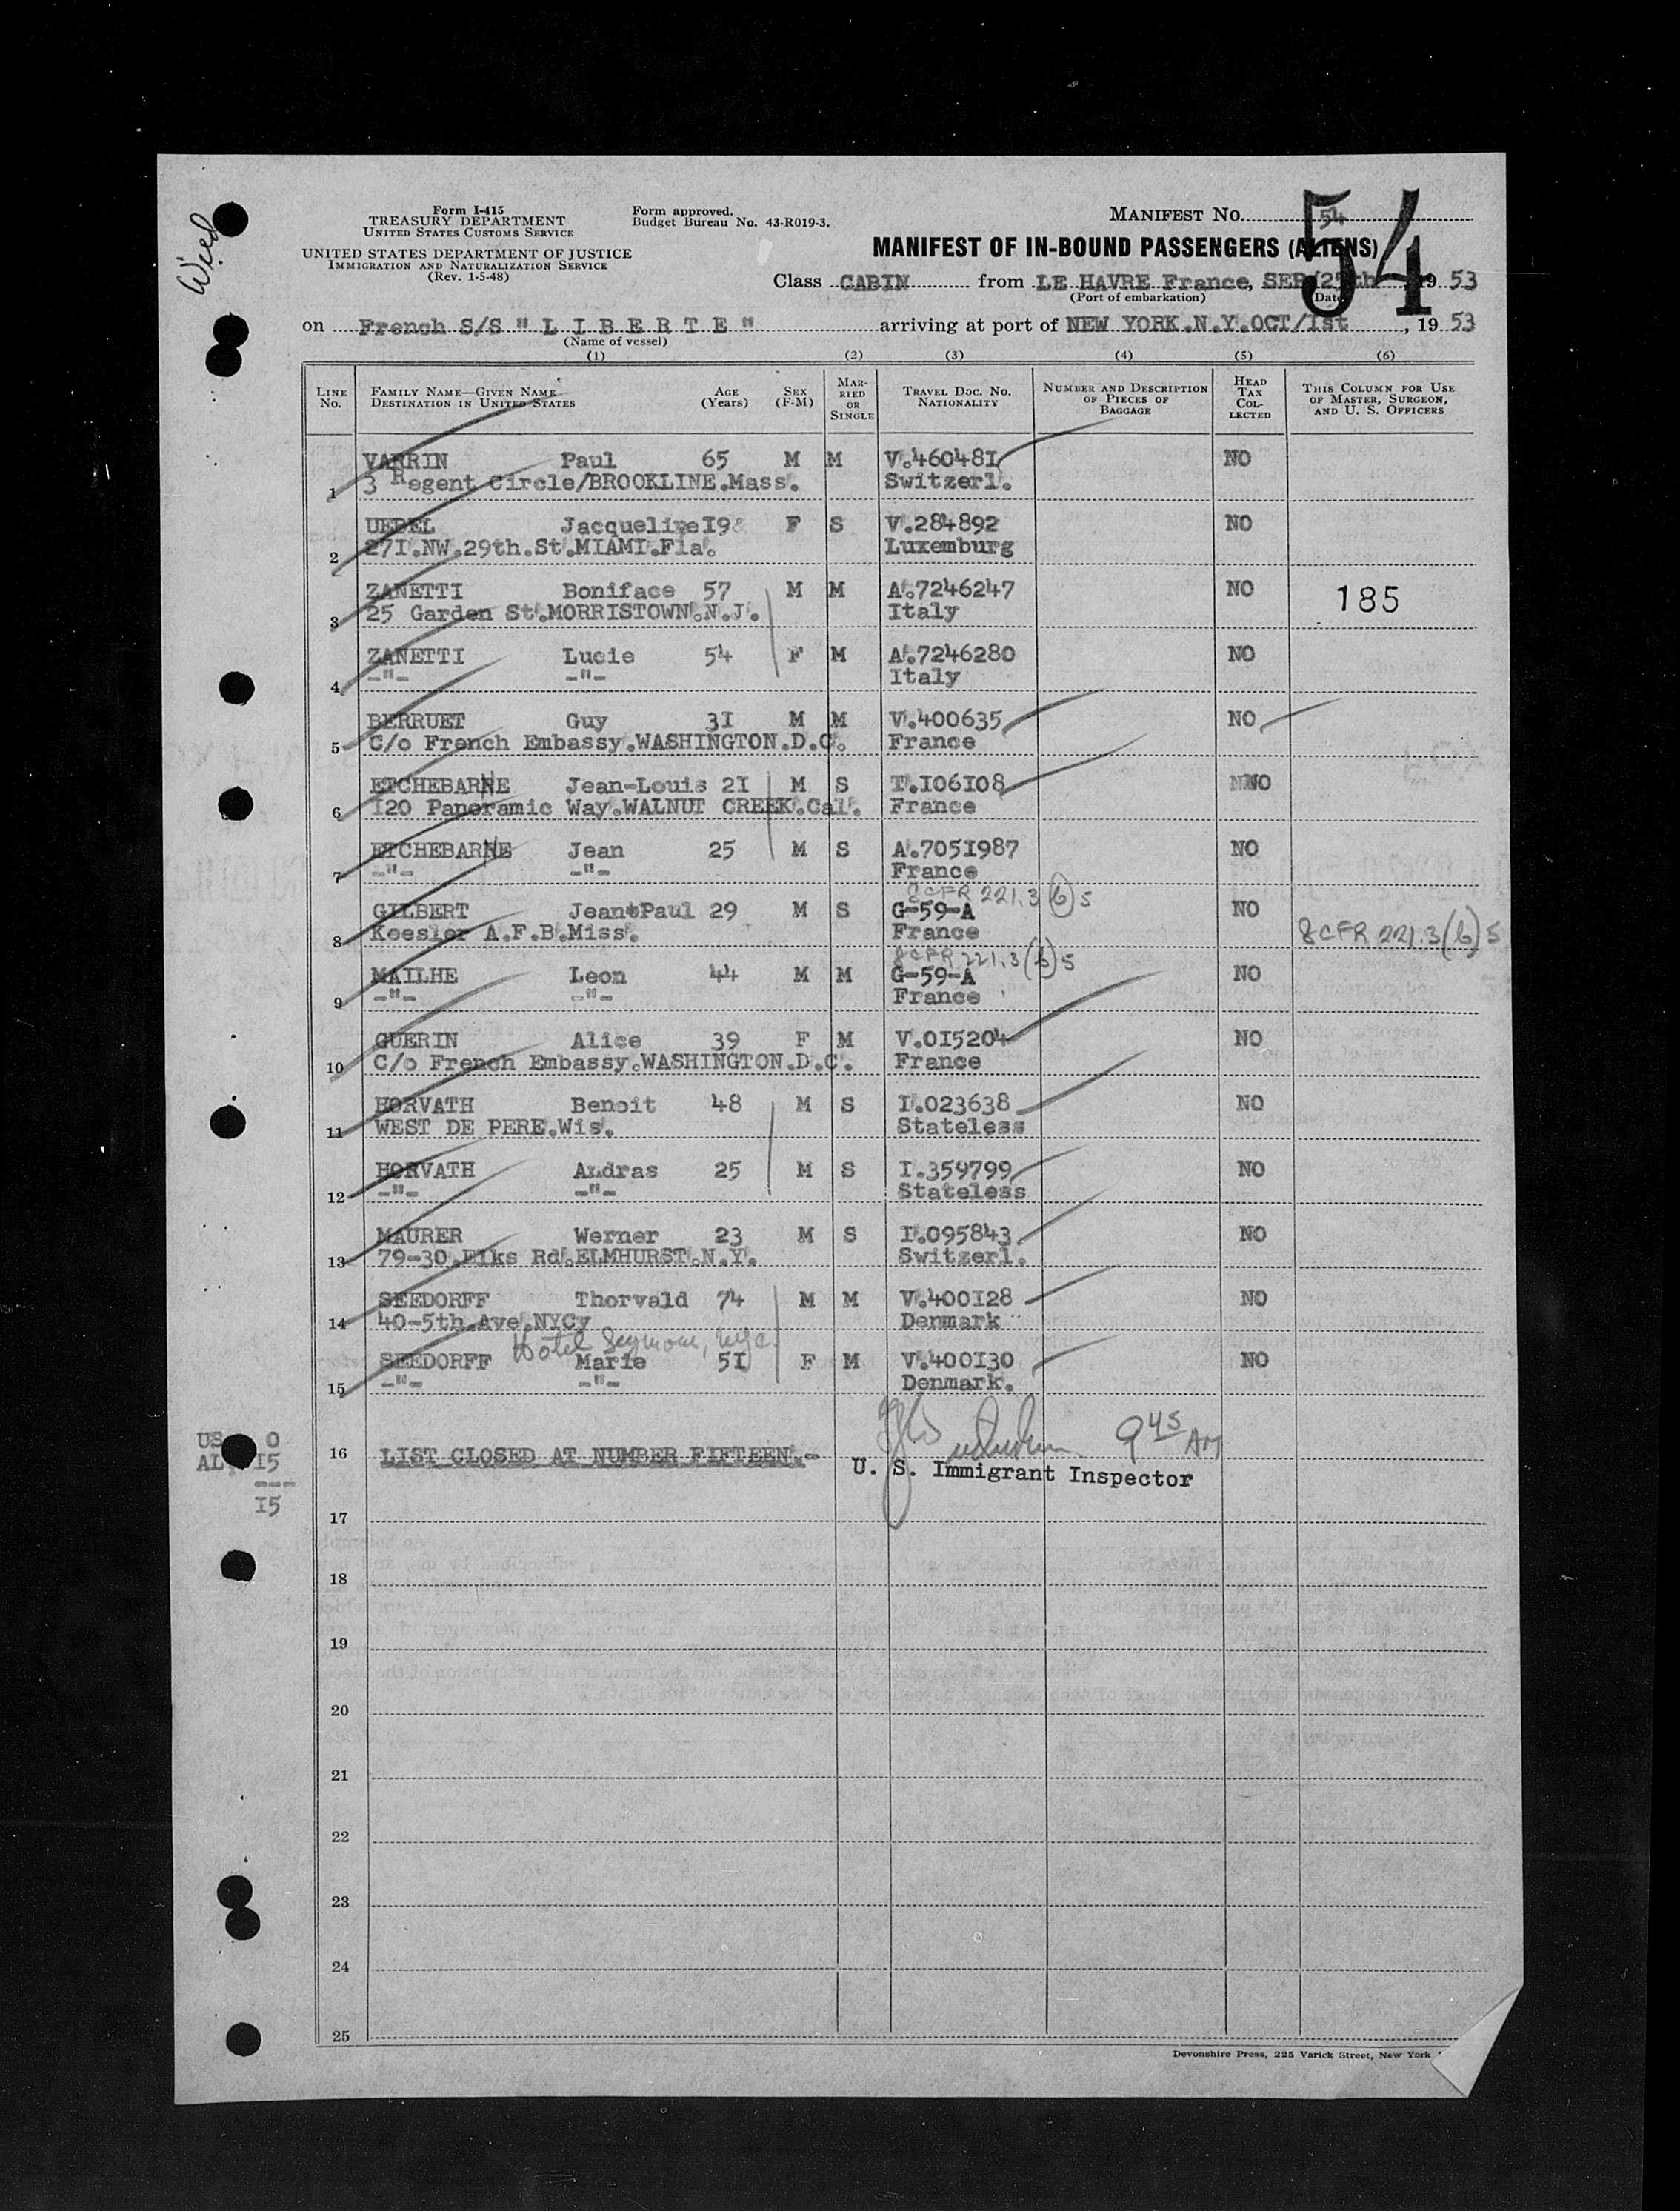 Wied
Form I-415
TREASURY DEPARTMENT
UNITED STATES CUSTOMS SERVICE
UNITED STATES DEPARTMENT OF JUSTICE
IMMIGRATION AND NATURALIZATION SERVICE
(Rev. 1-5-48)
Form approved.
Budget Bureau No. 43-R019-3.
MANIFEST NO. 54
54
MANIFEST OF IN-BOUND PASSENGERS (ALIENS)
Class CABIN from LE HAVRE France, SEP/25th, 19 53
(Port of embarkation) (Date)
on French S/S " L I B E R T E " arriving at port of NEW YORK.N.Y.OCT/Ist, 19 53
(Name of vessel)
(1) (2) (3) (4) (5) (6)
LINE No. FAMILY NAME—GIVEN NAME DESTINATION IN UNITED STATES AGE (Years) SEX (F-M) MARRIED OR SINGLE TRAVEL DOC. NO. NATIONALITY NUMBER AND DESCRIPTION OF PIECES OF BAGGAGE HEAD TAX COLLECTED THIS COLUMN FOR USE OF MASTER, SURGEON, AND U. S. OFFICERS
VARRIN Paul 65 M M V.46048I NO
1 3 Regent Circle/BROOKLINE.Mass. Switzerl.
UEBEL Jacqueline I9 F S V.284892 NO
2 27I.NW.29th.St.MIAMI.Fla. Luxemburg
ZANETTI Boniface 57 M M A.7246247 NO 185
3 25 Garden St.MORRISTOWN.N.J. Italy
ZANETTI Lucie 54 F M A.7246280 NO
4 -"- -"- Italy
BERRUET Guy 3I M M V.400635 NO
5 C/o French Embassy.WASHINGTON.D.C. France
ETCHEBARNE Jean-Louis 2I M S T.I06I08 NO
6 I20 Panoramic Way.WALNUT CREEK.Cal. France
ETCHEBARNE Jean 25 M S A.705I987 NO
7 -"- -"- France
8 CFR 221.3(b)5
GILBERT Jean-Paul 29 M S G-59-A NO
8 Keesler A.F.B.Miss. France 8 CFR 221.3(b)5
8 CFR 221.3(b)5
MAILHE Leon 44 M M G-59-A NO
9 -"- -"- France
GUERIN Alice 39 F M V.0I5204 NO
10 C/o French Embassy.WASHINGTON.D.C. France
HORVATH Benoit 48 M S I.023638 NO
11 WEST DE PERE.Wis. Stateless
HORVATH Andras 25 M S I.359799 NO
12 -"- -"- Stateless
MAURER Werner 23 M S I.095843 NO
13 79-30.Elks Rd.ELMHURST.N.Y. Switzerl.
SEEDORFF Thorvald 74 M M V.400I28 NO
14 40-5th.Ave.NYCy Denmark
Hotel Seymour, NYC
SEEDORFF Marie 5I F M V.400I30 NO
15 -"- -"- Denmark.
9 45 AM
US 0
AL. I5
---
I5
16 LIST CLOSED AT NUMBER FIFTEEN.-
U. S. Immigrant Inspector
17
18
19
20
21
22
23
24
25
Devonshire Press, 225 Varick Street, New York